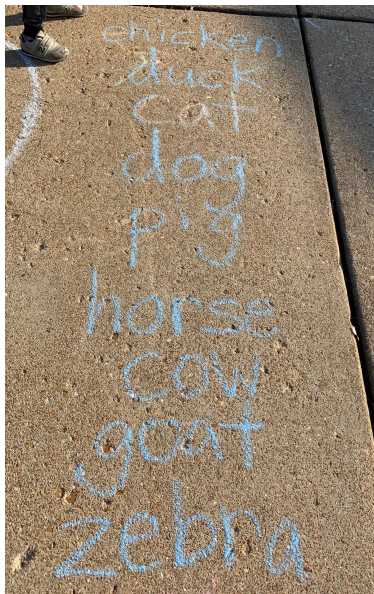 chicken
duck
cat
dog
pig
horse
cow
goat
zebra